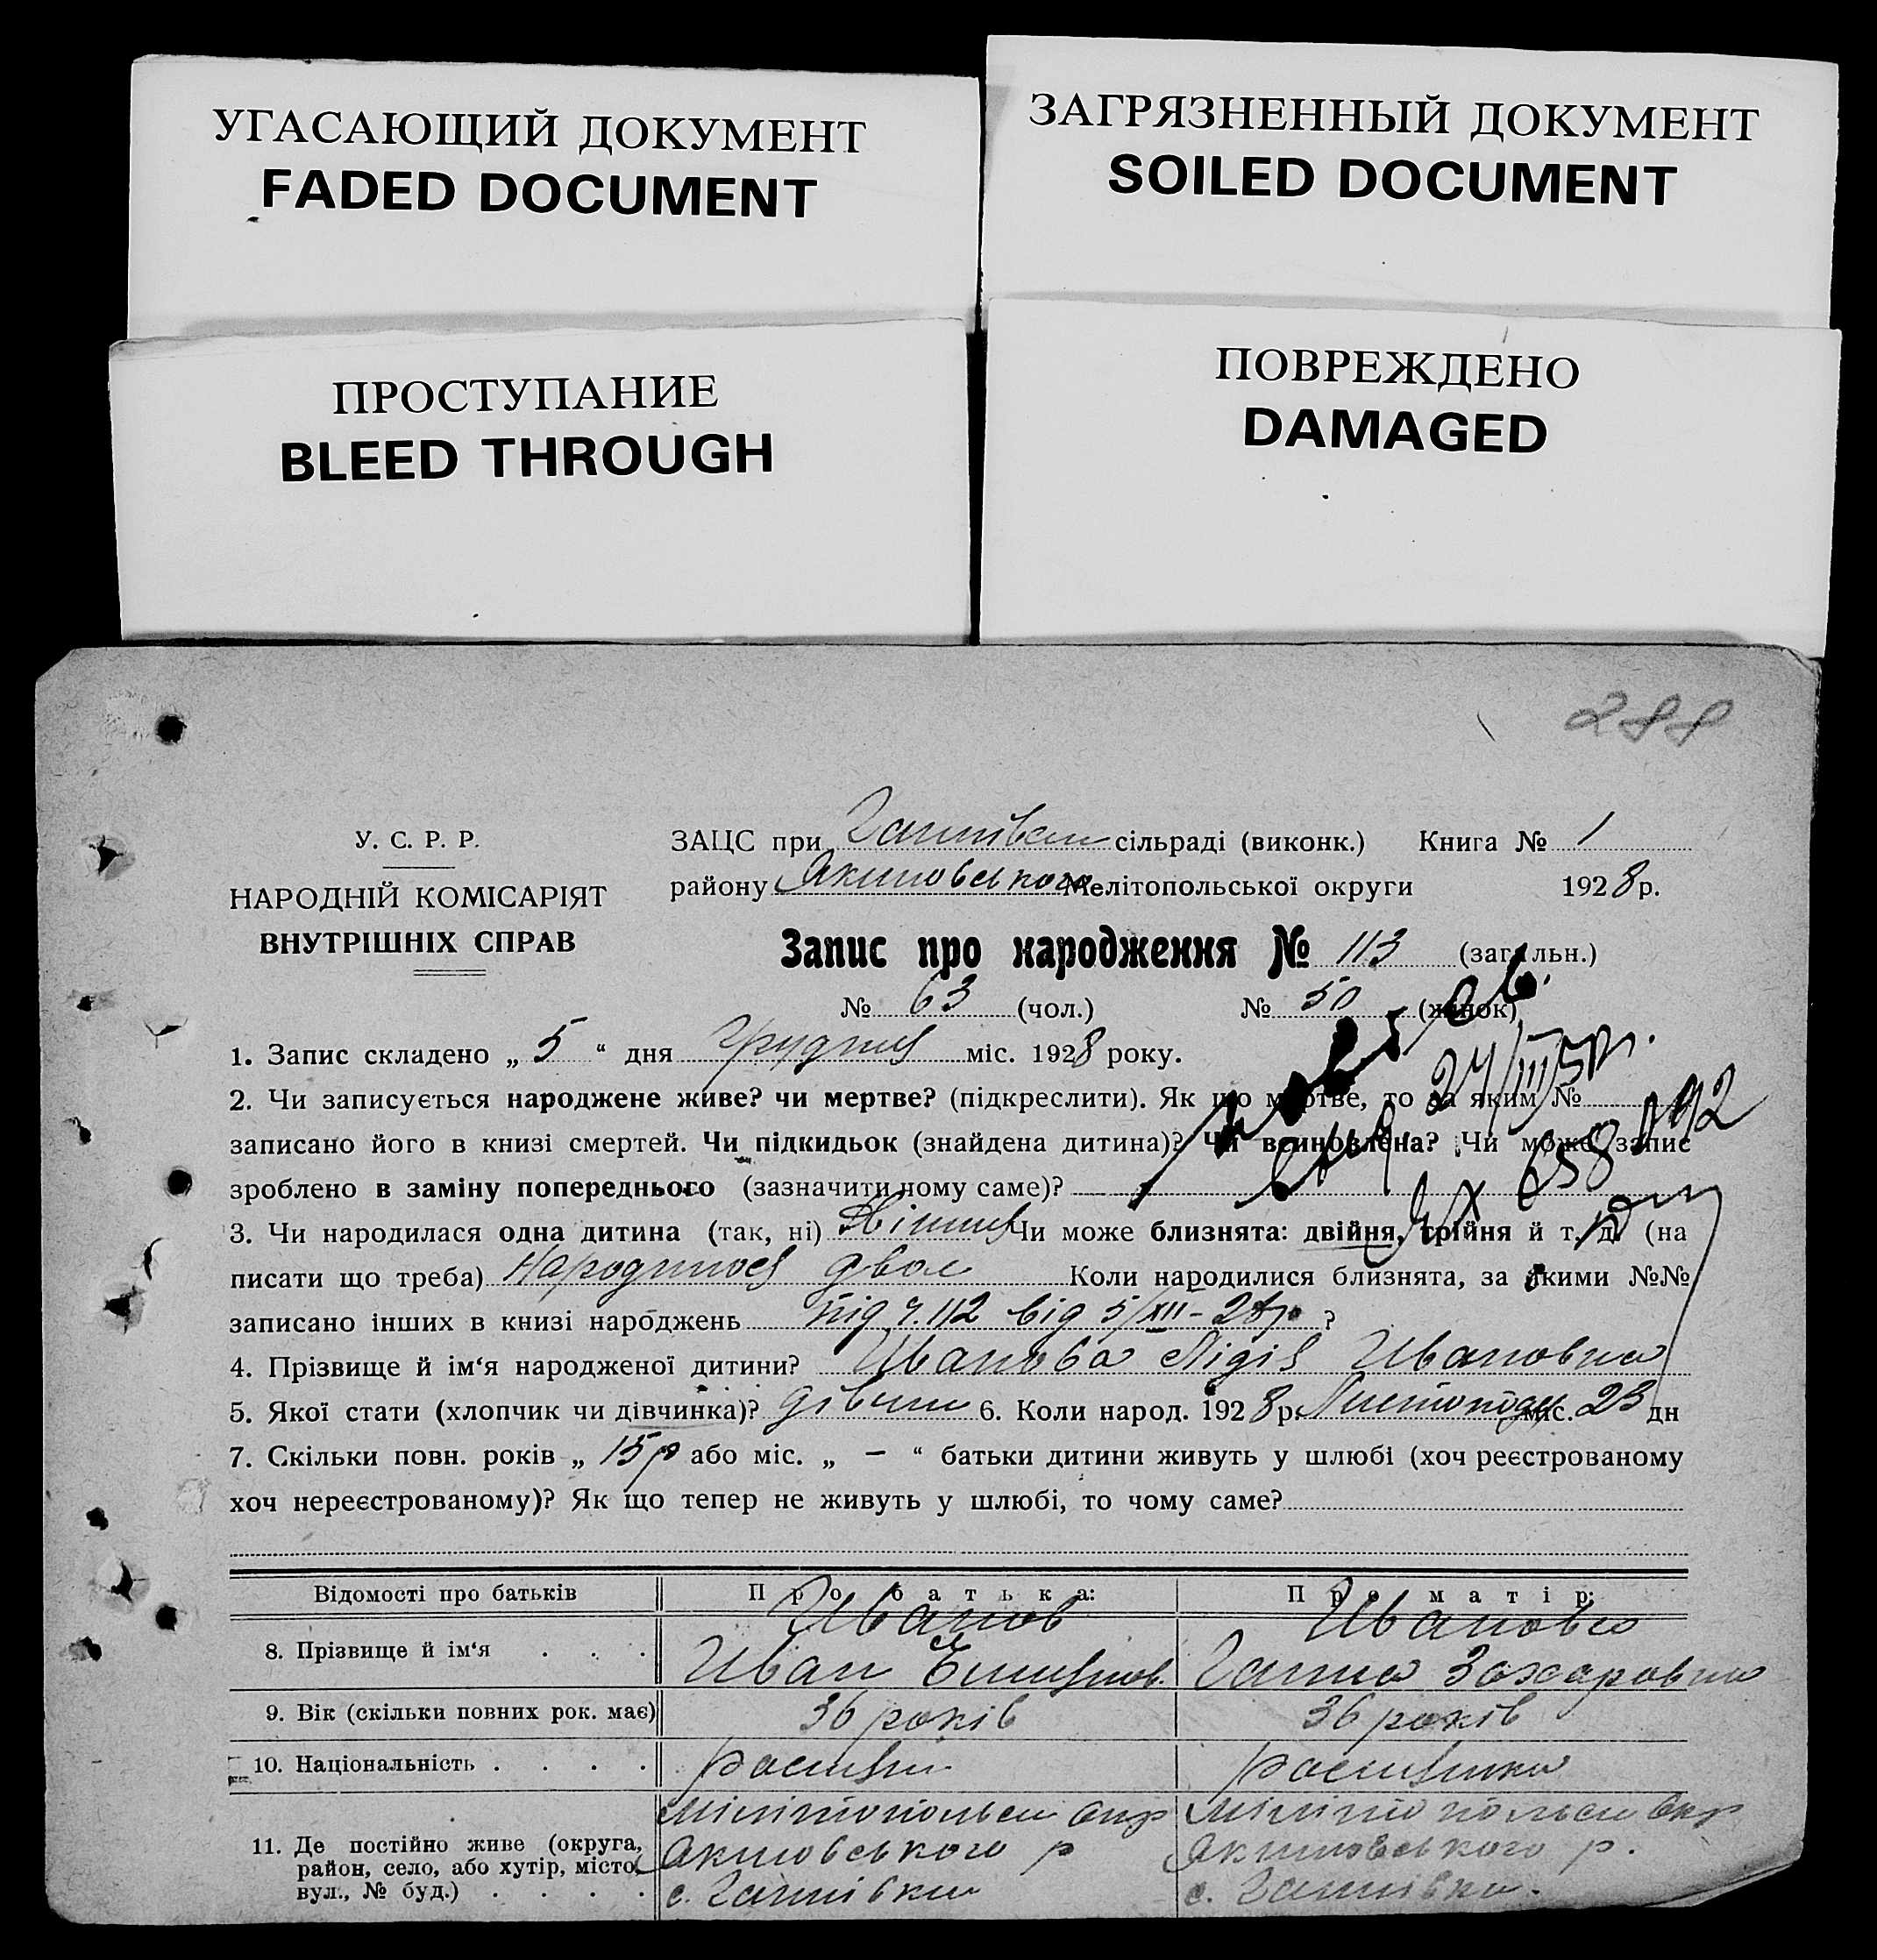 УГАСАЮЩИЙ ДОКУМЕНТ
FADED DOCUMENT
ЗАГРЯЗНЕННЫЙ ДОКУМЕНТ
SOILED DOCUMENT
ПРОСТУПАНИЕ
BLEED THROUGH
ПОВРЕЖДЕНО
DAMAGED
288
У. С. Р. Р.
НАРОДНІЙ КОМІСАРІЯТ
ВНУТРІШНІХ СПРАВ
ЗАЦС при Ганнівськ сільраді (виконк.) Книга № 1
району Якимовського Мелітопольської округи 1928 р.
Запис про народження № 113 (загальн.)
№ 63 (чол.) № 50 (жинок)
1. Запис складено „ 5 “ дня Грудня міс. 1928 року.
27/III
2. Чи записується народжене живе? чи мертве? (підкреслити). Як що мертве, то за яким №
записано його в книзі смертей. Чи підкидьок (знайдена дитина)? Чи всиновлена? Чи може запис
зроблено в заміну попереднього (зазначити чому саме)?
658
3. Чи народилася одна дитина (так, ні) Чи може близнята: двійня, трійня й т. д. (на
писати що треба) Народилося двое Коли народилися близнята, за якими №№
записано інших в книзі народжень під ч. 112 від 5/XII-28р ?
4. Прізвище й ім‘я народженої дитини? Иванова Лідія Ивановна
5. Якої стати (хлопчик чи дівчинка)? дівчин 6. Коли народ. 1928 р. Листопада міс. 23 дн
7. Скільки повн. років „ 15р або міс. „ — “ батьки дитини живуть у шлюбі (хоч реєстрованому
хоч нереєстрованому)? Як що тепер не живуть у шлюбі, то чому саме?
Відомості про батьків Про батька: Про матір:
Иванов Иванова
8. Прізвище й ім‘я . . . Иван Ганна Захаровна
9. Вік (скільки повних рок. має) 36 років 36 років
10. Національність . . . . росиянин росиянка
Мілітопольськ Окр Мілітопольськ Окр
11. Де постійно живе (округа, Якимовського р Якимовського р.
район, село, або хутір, місто,
вул., № буд.) . . . . с. Ганнівки с. Ганнівки.